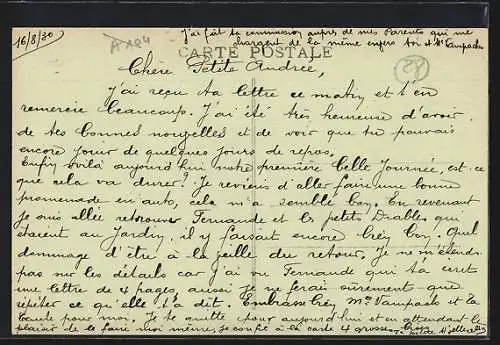 16/8/30
J'ai fait ta commission auprès de mes Parents qui me
chargent de la même envers toi et Me Pampach
CARTE POSTALE
Chère Petite Andrée,
J'ai reçu ta lettre ce matin et t'en
remercie beaucoup. J'ai été très heureuse d'avoir
de tes bonnes nouvelles et de voir que tu pouvais
encore jouir de quelques jours de repos.
Enfin voilà aujourd'hui notre première belle Journée, est-ce
que cela va durer? Je reviens d'aller faire une bonne
promenade en auto, cela m'a semblé bon. En revenant
je suis allée retrouver Fernande et les petits Diables qui
étaient au Jardin, il y faisait encore très bon. Quel
dommage d'être à la veille du retour. Je ne m'étends
pas sur les détails car j'ai vu Fernande qui t'a écrit
une lettre de 4 pages, aussi je ne ferais sûrement que
répéter ce qu'elle t'a dit. Embrasse bien Me Pampach et ta
tante pour moi. Je te quitte pour aujourd'hui et en attendant le
plaisir de le faire moi même, je confie à la carte 4 grosses bises
Ta petite